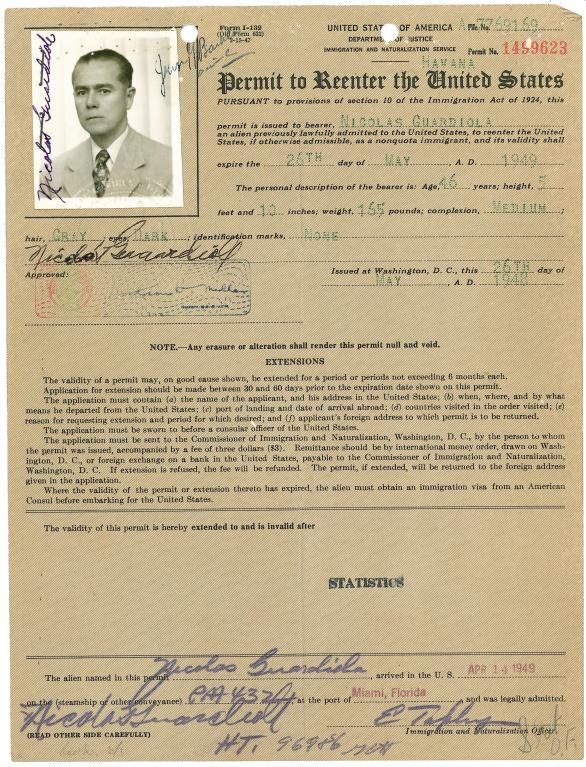 Form I-132
(Old Form 622)
9-15-47
UNITED STATES OF AMERICA
A-7769169
File No.
DEPARTMENT OF JUSTICE
IMMIGRATION AND NATURALIZATION SERVICE
Permit No. 1499623
HAVANA
Nicolas Guardiola
Permit to Reenter the United States
PURSUANT to provisions of section 10 of the Immigration Act of 1924, this
permit is issued to bearer, NICOLAS GUARDIOLA
an alien previously lawfully admitted to the United States, to reenter the United
States, if otherwise admissible, as a nonquota immigrant, and its validity shall
expire the 26TH day of MAY, A. D. 1949
The personal description of the bearer is: Age, 46 years; height, 5
feet and 10 inches; weight, 165 pounds; complexion, MEDIUM;
hair, GRAY; eyes, DARK; identification marks, NONE
Nicolas Guardiola
Approved:
Issued at Washington, D. C., this 26TH day of
MAY, A. D. 1948
NOTE.—Any erasure or alteration shall render this permit null and void.
EXTENSIONS
The validity of a permit may, on good cause shown, be extended for a period or periods not exceeding 6 months each.
Application for extension should be made between 30 and 60 days prior to the expiration date shown on this permit.
The application must contain (a) the name of the applicant, and his address in the United States; (b) when, where, and by what
means he departed from the United States; (c) port of landing and date of arrival abroad; (d) countries visited in the order visited; (e)
reason for requesting extension and period for which desired; and (f) applicant's foreign address to which permit is to be returned.
The application must be sworn to before a consular officer of the United States.
The application must be sent to the Commissioner of Immigration and Naturalization, Washington, D. C., by the person to whom
the permit was issued, accompanied by a fee of three dollars ($3). Remittance should be by international money order, drawn on Wash-
ington, D. C., or foreign exchange on a bank in the United States, payable to the Commissioner of Immigration and Naturalization,
Washington, D. C. If extension is refused, the fee will be refunded. The permit, if extended, will be returned to the foreign address
given in the application.
Where the validity of the permit or extension thereto has expired, the alien must obtain an immigration visa from an American
Consul before embarking for the United States.
The validity of this permit is hereby extended to and is invalid after
STATISTICS
The alien named in this permit Nicolas Guardiola, arrived in the U. S. APR 14 1949
on the (steamship or other conveyance) PAA 432 at the port of Miami, Florida and was legally admitted.
Nicolas Guardiola
Immigration and Naturalization Officer.
(READ OTHER SIDE CAREFULLY)
HT. 96986